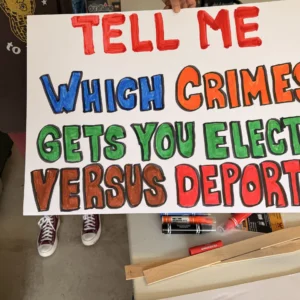 TELL ME
WHICH CRIMES
GETS YOU ELECT
VERSUS DEPORT
to